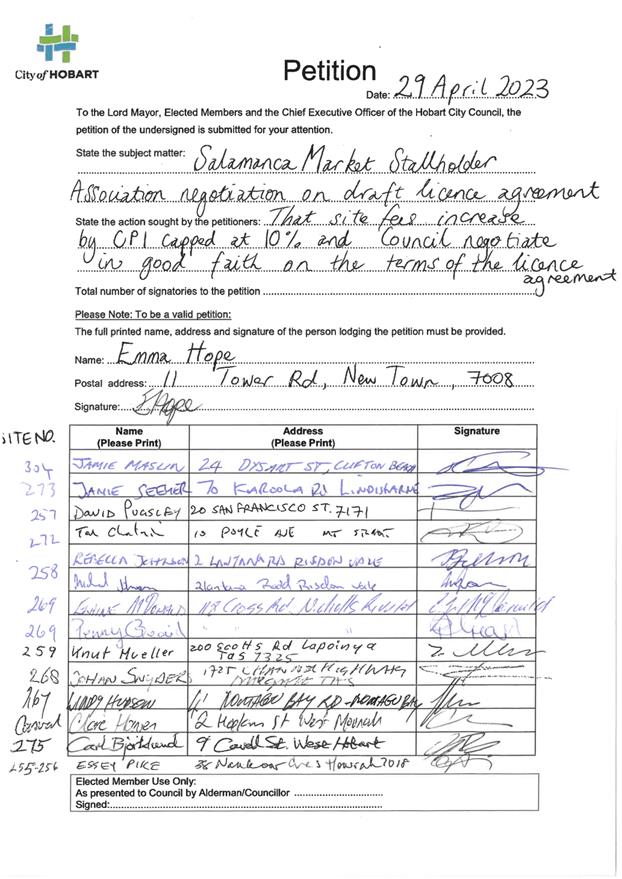 City of HOBART
Petition
Date: 29 April 2023
To the Lord Mayor, Elected Members and the Chief Executive Officer of the Hobart City Council, the
petition of the undersigned is submitted for your attention.
State the subject matter: Salamanca Market Stallholder
Association negotiation on draft licence agreement
State the action sought by the petitioners: That site fees increase
by CPI capped at 10% and Council negotiate
in good faith on the terms of the licence
agreement
Total number of signatories to the petition
Please Note: To be a valid petition:
The full printed name, address and signature of the person lodging the petition must be provided.
Name: Emma Hope
Postal address: 11 Tower Rd, New Town, 7008
Signature: EHope
SITE NO. Name Address Signature
(Please Print) (Please Print)
304 JAMIE MASLIN 24 DYSART ST, CLIFTON BEACH
273 JANIE SEEKER 70 KAROOLA RD LINDISFARNE
257 DAVID PUGSLEY 20 SAN FRANCISCO ST. 7171
272 10 AVE MT STUART
258 REBECCA JOHNSON 2 LANTANA RD RISDON VALE
2 lantana Road Risdon Vale
269 McDonald 118 Cross Rd Nicholls Rivulet
269 Penny " "
259 Knut Mueller 200 Scotts Rd Lapoinya
TAS 7325
268 JOHAN SNYDERS 1725 HIGHWAY
TAS
267 HUDSON 41 MONTAGU BAY RD - MONTAGU BAY
Casual Clare 2 St West Moonah
275 Carl 9 Cavell St. West Hobart
255-256 ESSET PIKE 36 Cres Howrah 7018
Elected Member Use Only:
As presented to Council by Alderman/Councillor
Signed: